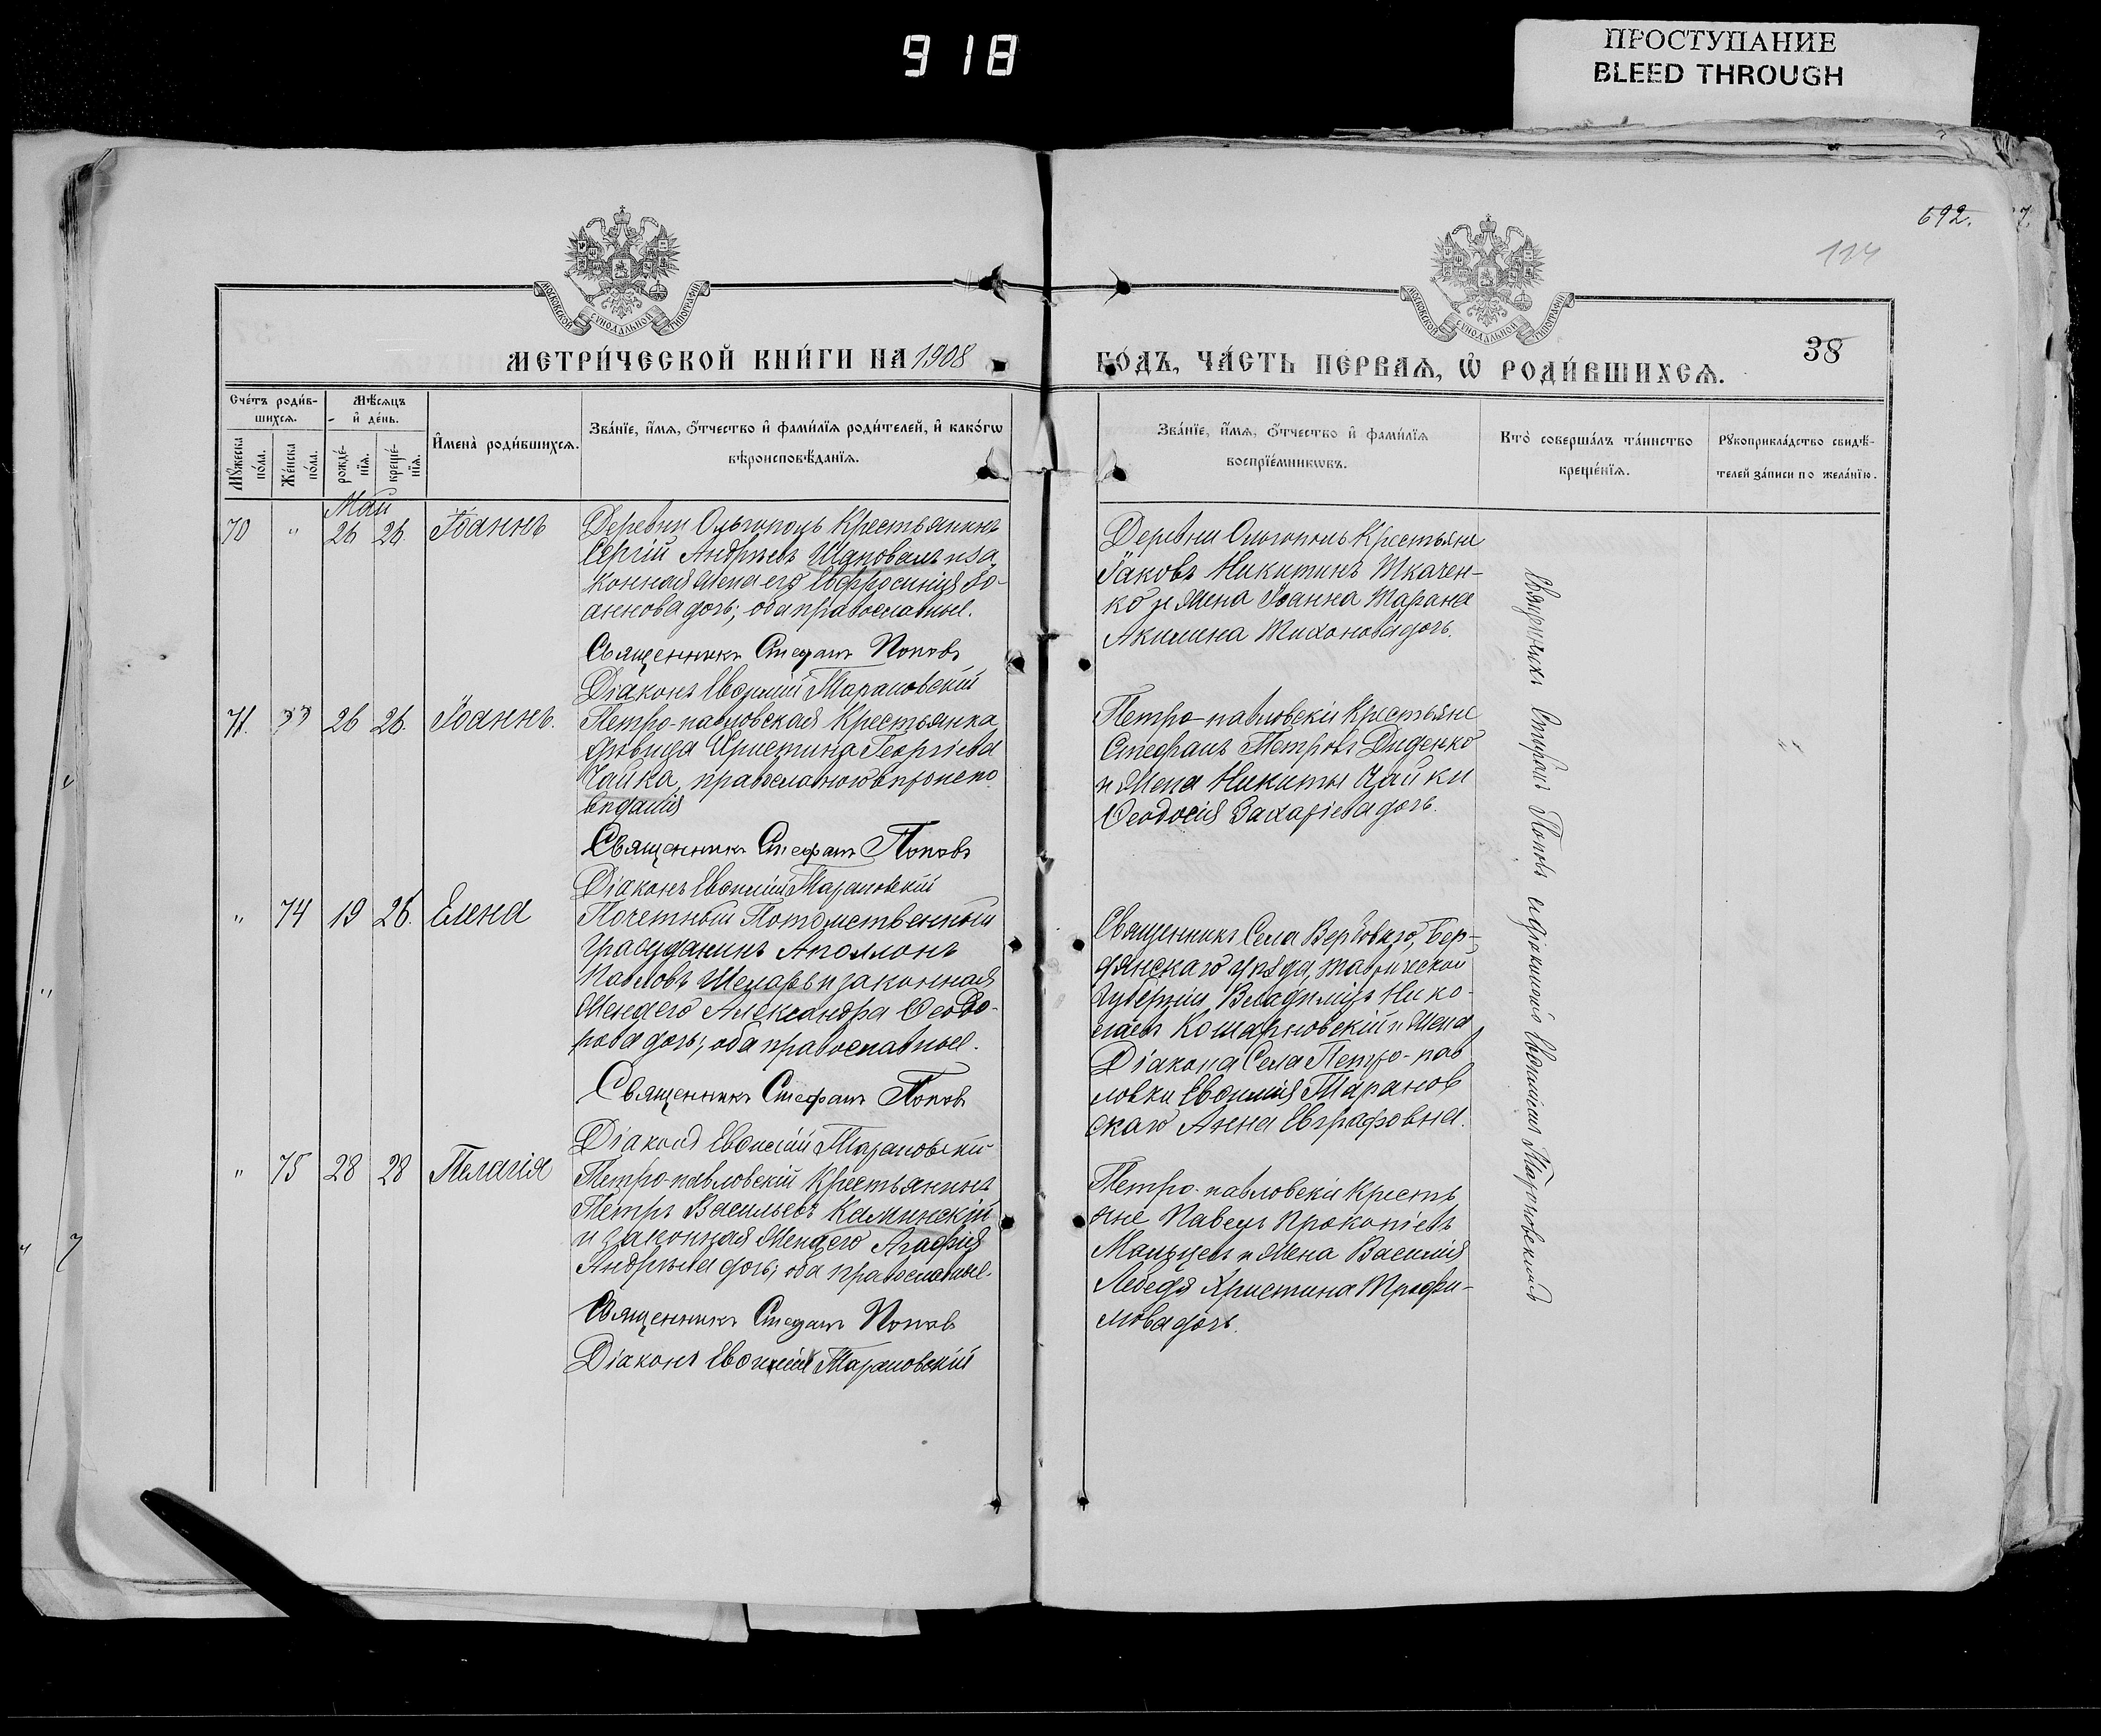 918
ПРОСТУПАНИЕ
BLEED THROUGH
692.
114
38
МОСКОВСКОЙ СѴНОДАЛЬНОЙ ТИПОГРАФІИ
МОСКОВСКОЙ СѴНОДАЛЬНОЙ ТИПОГРАФІИ
МЕТРИ́ЧЕСКОЙ КНИ́ГИ НА 1908
ГО́ДЪ, ЧА́СТЬ ПЕ́РВАѦ, Ѡ҆ РОДИ́ВШИХСѦ.
Сче́тъ роди́в-
шихсѧ.
Мꙋ́жеска по́ла.
Же́нска по́ла.
Мѣ́сѧцъ
и҆ де́нь.
рожде́-нїѧ.
креще́-нїѧ.
И҆мена̀ роди́вшихсѧ.
Зва́нїе, и҆́мѧ, ѻ҆́тчество и҆ фами́лїѧ роди́телей, и҆ како́гѡ
вѣроисповѣ́данїѧ.
Зва́нїе, и҆́мѧ, ѻ҆́тчество и҆ фами́лїѧ
воспрїе́мникѡвъ.
Кто̀ соверша́лъ та́инство
креще́нїѧ.
Рꙋкоприкла́дство свидѣ́-
телей за́писи по жела́нїю.
Май
70 " 26 26. Іоаннъ
Деревни Ольгополь Крестьянинъ
Сергій Андреевъ Шаповалъ и за
конная жена его Евфросинія Іо-
аннова дочь; оба православные.
Священникъ Стефанъ Поповъ
Діаконъ Евѳимій Тарановскій
Деревни Ольгополь Крестьяне
Іаковъ Никитинъ Ткачен-
ко и жена Іоанна Тарана
Акилина Тихонова дочь.
71. " 26 26. Іоаннъ.
Петро-павловская Крестьянка
дѣвица Христина Георгіева
Чайка, православного вѣроиспо
вѣданія
Священникъ Стефанъ Поповъ
Діаконъ Евѳимій Тарановскій
Петро-павловскіи Крестьяне
Стефанъ Петровъ Диденко
и жена Никиты Чайки
Ѳеодосія Захаріева дочь.
" 74 19 26. Елена
Почетный Потомственный
Гражданинъ Аполлонъ
Павловъ и законная
жена его Александра Ѳеодо-
рова дочь; оба православные.
Священникъ Стефанъ Поповъ
Діаконъ Евѳимій Тарановскій
Священникъ Села Вербоваго, Бер-
дянскаго уѣзда, Таврической
Губерніи Владиміръ Нико-
лаевъ и жена
Діакона Села Петро-пав
ловки Евѳимія Таранов
скаго Анна Евграфовна.
" 75 28 28 Пелагія
Петро-павловскій Крестьянинъ
Петръ Васильевъ Каминскій
и законная жена его Агафія
Андреева дочь; оба православные.
Священникъ Стефанъ Поповъ
Діаконъ Евѳимій Тарановскій
Петро-павловскіи Кресть
яне Павелъ Прокопіевъ
и жена Василія
Лебедя Христина Трофи-
мова дочь.
Священникъ Стефанъ Поповъ и діаконъ Евѳиміемъ Тарановскимъ